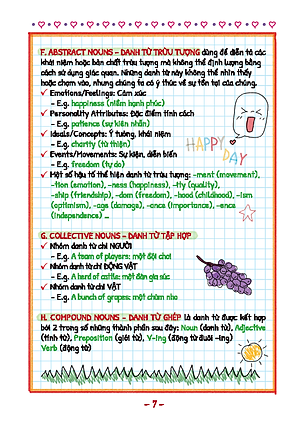 F. ABSTRACT NOUNS – DANH TỪ TRỪU TƯỢNG dùng để diễn tả các
khái niệm hoặc bản chất trừu tượng mà không thể định lượng bằng
cách sử dụng giác quan. Những danh từ này không thể nhìn thấy
hoặc chạm vào, nhưng chúng ta có ý thức về sự tồn tại của chúng.
✓ Emotions/Feelings: Cảm xúc
– E.g. happiness (niềm hạnh phúc)
✓ Personality Attributes: Đặc điểm tính cách
– E.g. patience (sự kiên nhẫn)
✓ Ideals/Concepts: Ý tưởng, khái niệm
– E.g. charity (từ thiện)
✓ Events/Movements: Sự kiện, diễn biến
– E.g. freedom (tự do)
✓ Một số hậu tố thể hiện danh từ trừu tượng: -ment (movement),
-tion (emotion), -ness (happiness), -ity (quality),
-ship (friendship), -dom (freedom), -hood (childhood), -ism
(optimism), -age (damage), -ance (importance), -ence
(independence) ...
HAPPY
DAY
G. COLLECTIVE NOUNS – DANH TỪ TẬP HỢP
✓ Nhóm danh từ chỉ NGƯỜI
– E.g. A team of players: một đội chơi
✓ Nhóm danh từ chỉ ĐỘNG VẬT
– E.g. A herd of cattle: một đàn gia súc
✓ Nhóm danh từ chỉ VẬT
– E.g. A bunch of grapes: một chùm nho
H. COMPOUND NOUNS – DANH TỪ GHÉP là danh từ được kết hợp
bởi 2 trong số những thành phần sau đây: Noun (danh từ), Adjective
(tính từ), Preposition (giới từ), V-ing (động từ đuôi -ing)
Verb (động từ)
– 7 –